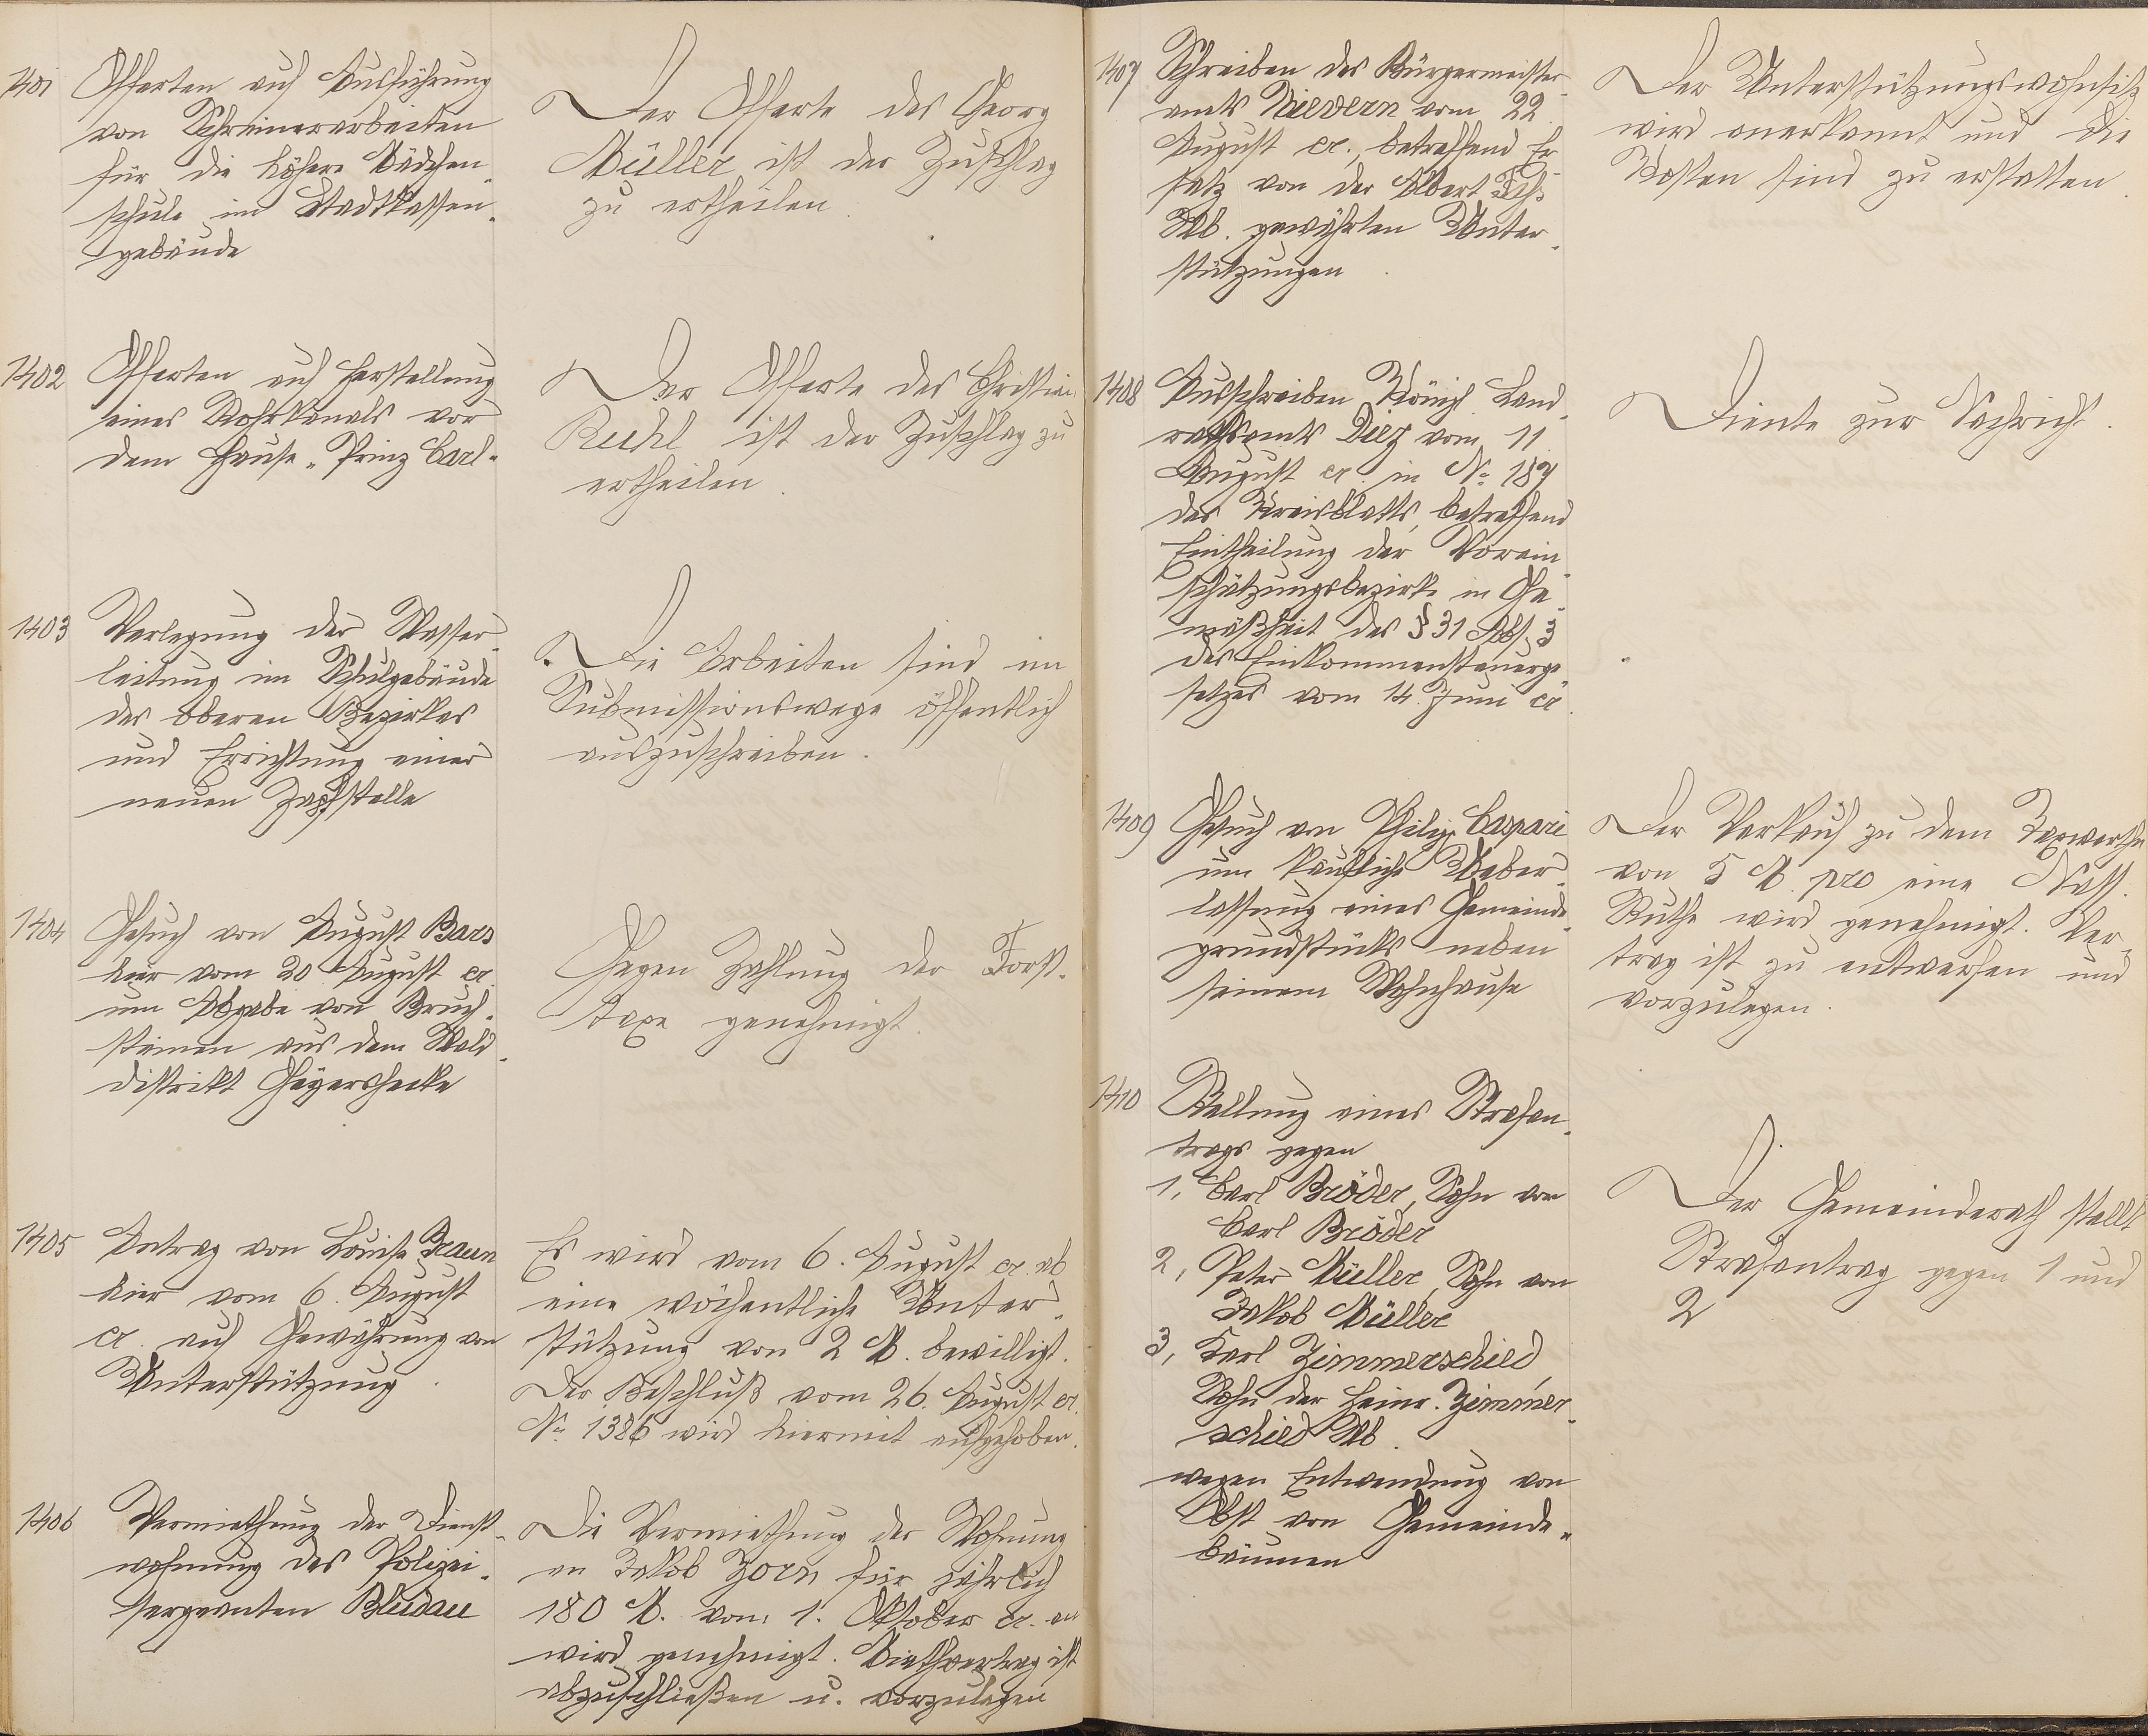 1401
Offerten auf Ausführung
von Schreinerarbeiten
für die höhere Mädchen-
schule im Stadtkassen-
gebäude
Der Offerte des Georg
Müller ist der Zuschlag
zu ertheilen.
1402
Offerten auf Herstellung
eines Rohrkanals vor
dem Hause "Prinz Carl"
Der Offerte des Christian
Ruhl ist der Zuschlag zu
ertheilen.
1403
Verlegung der Wasser-
leitung im Schulgebäude
des oberen Bezirkes
und Errichtung einer
neuen Zapfstelle
Die Arbeiten sind im
Submissionswege öffentlich
auszuschreiben.
1404
Gesuch von August Bars
hier vom 20 August cr.
um Abgabe von Bruch-
steinen aus dem Wald-
distrikt Geyershecke
Gegen Zahlung der Forst-
taxe genehmigt.
1405
Antrag von Louise Braun
hier vom 6. August
cr. auf Gewährung von
Unterstützung.
Es wird vom 6. August cr. ab
eine wöchentliche Unter-
stützung von 2 M. bewilligt.
Der Beschluß vom 26. August cr.
No 1386 wird hiermit aufgehoben.
1406
Vermiethung der Dienst-
wohnung des Polizei-
sergeanten Bludau
Die Vermiethung der Wohnung
an Jakob Zorn für jährlich
180 M. vom 1. Oktober cr. an
wird genehmigt. Miethvertrag ist
abzuschließen u. vorzulegen
1407
Schreiben des Bürgermeister-
amts Nievern vom 22.
August cr., betreffend Er-
satz von der Albert
Wb. gewährten Unter-
stützungen.
Der Unterstützungswohnsitz
wird anerkannt und die
Kosten sind zu erstatten.
1408
Ausschreiben Königl. Land-
rathsamts Diez vom 11.
August cr. in No 187
des Kreisblatts, betreffend
Eintheilung der Vorein-
schätzungsbezirke in Ge-
mäßheit des § 31 Abs. 3
des Einkommensteuerge-
setzes vom 14. Juni cr.
Diente zur Nachricht.
1409
Gesuch von Philipp Caspari
um käufliche Ueber-
lassung eines Gemeinde-
grundstücks neben
seinem Wohnhause
Der Verkauf zu dem Taxwerthe
von 5 M. pro eine Nass.
Ruthe wird genehmigt. Ver-
trag ist zu entwerfen und
vorzulegen.
1410
Stellung eines Strafan-
trags gegen
1, Carl Bröder, Sohn von
Carl Bröder
2, Peter Müller, Sohn von
Jakob Müller
3, Karl Zimmerschied,
Sohn der Heinr. Zimmer-
schied Wb.
wegen Entwendung von
Obst von Gemeinde-
bäumen
Der Gemeinderath stellt
Strafantrag gegen 1 und
2